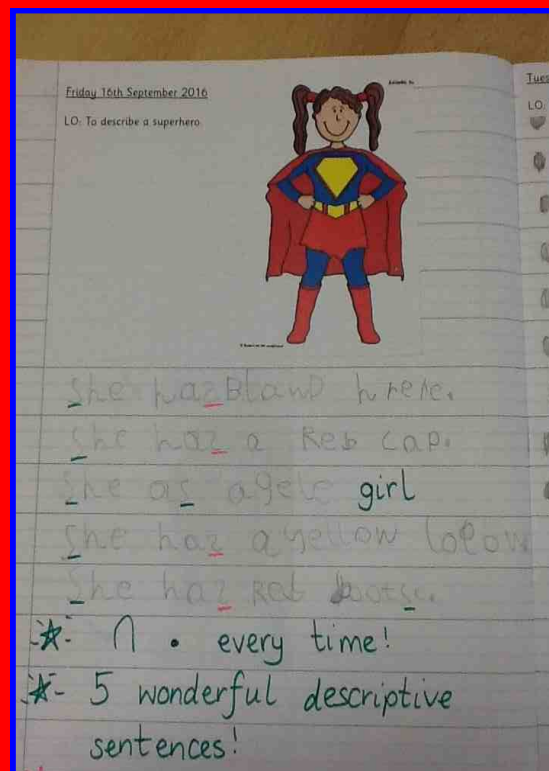 Friday 16th September 2016
Tues
LO: To describe a superhero.
LO:
She haz Bland hrere.
She haz a Reb cap.
She as agele girl
She haz a yellow lolow
She haz Reb bootsc.
∩ • every time!
5 wonderful descriptive
sentences!